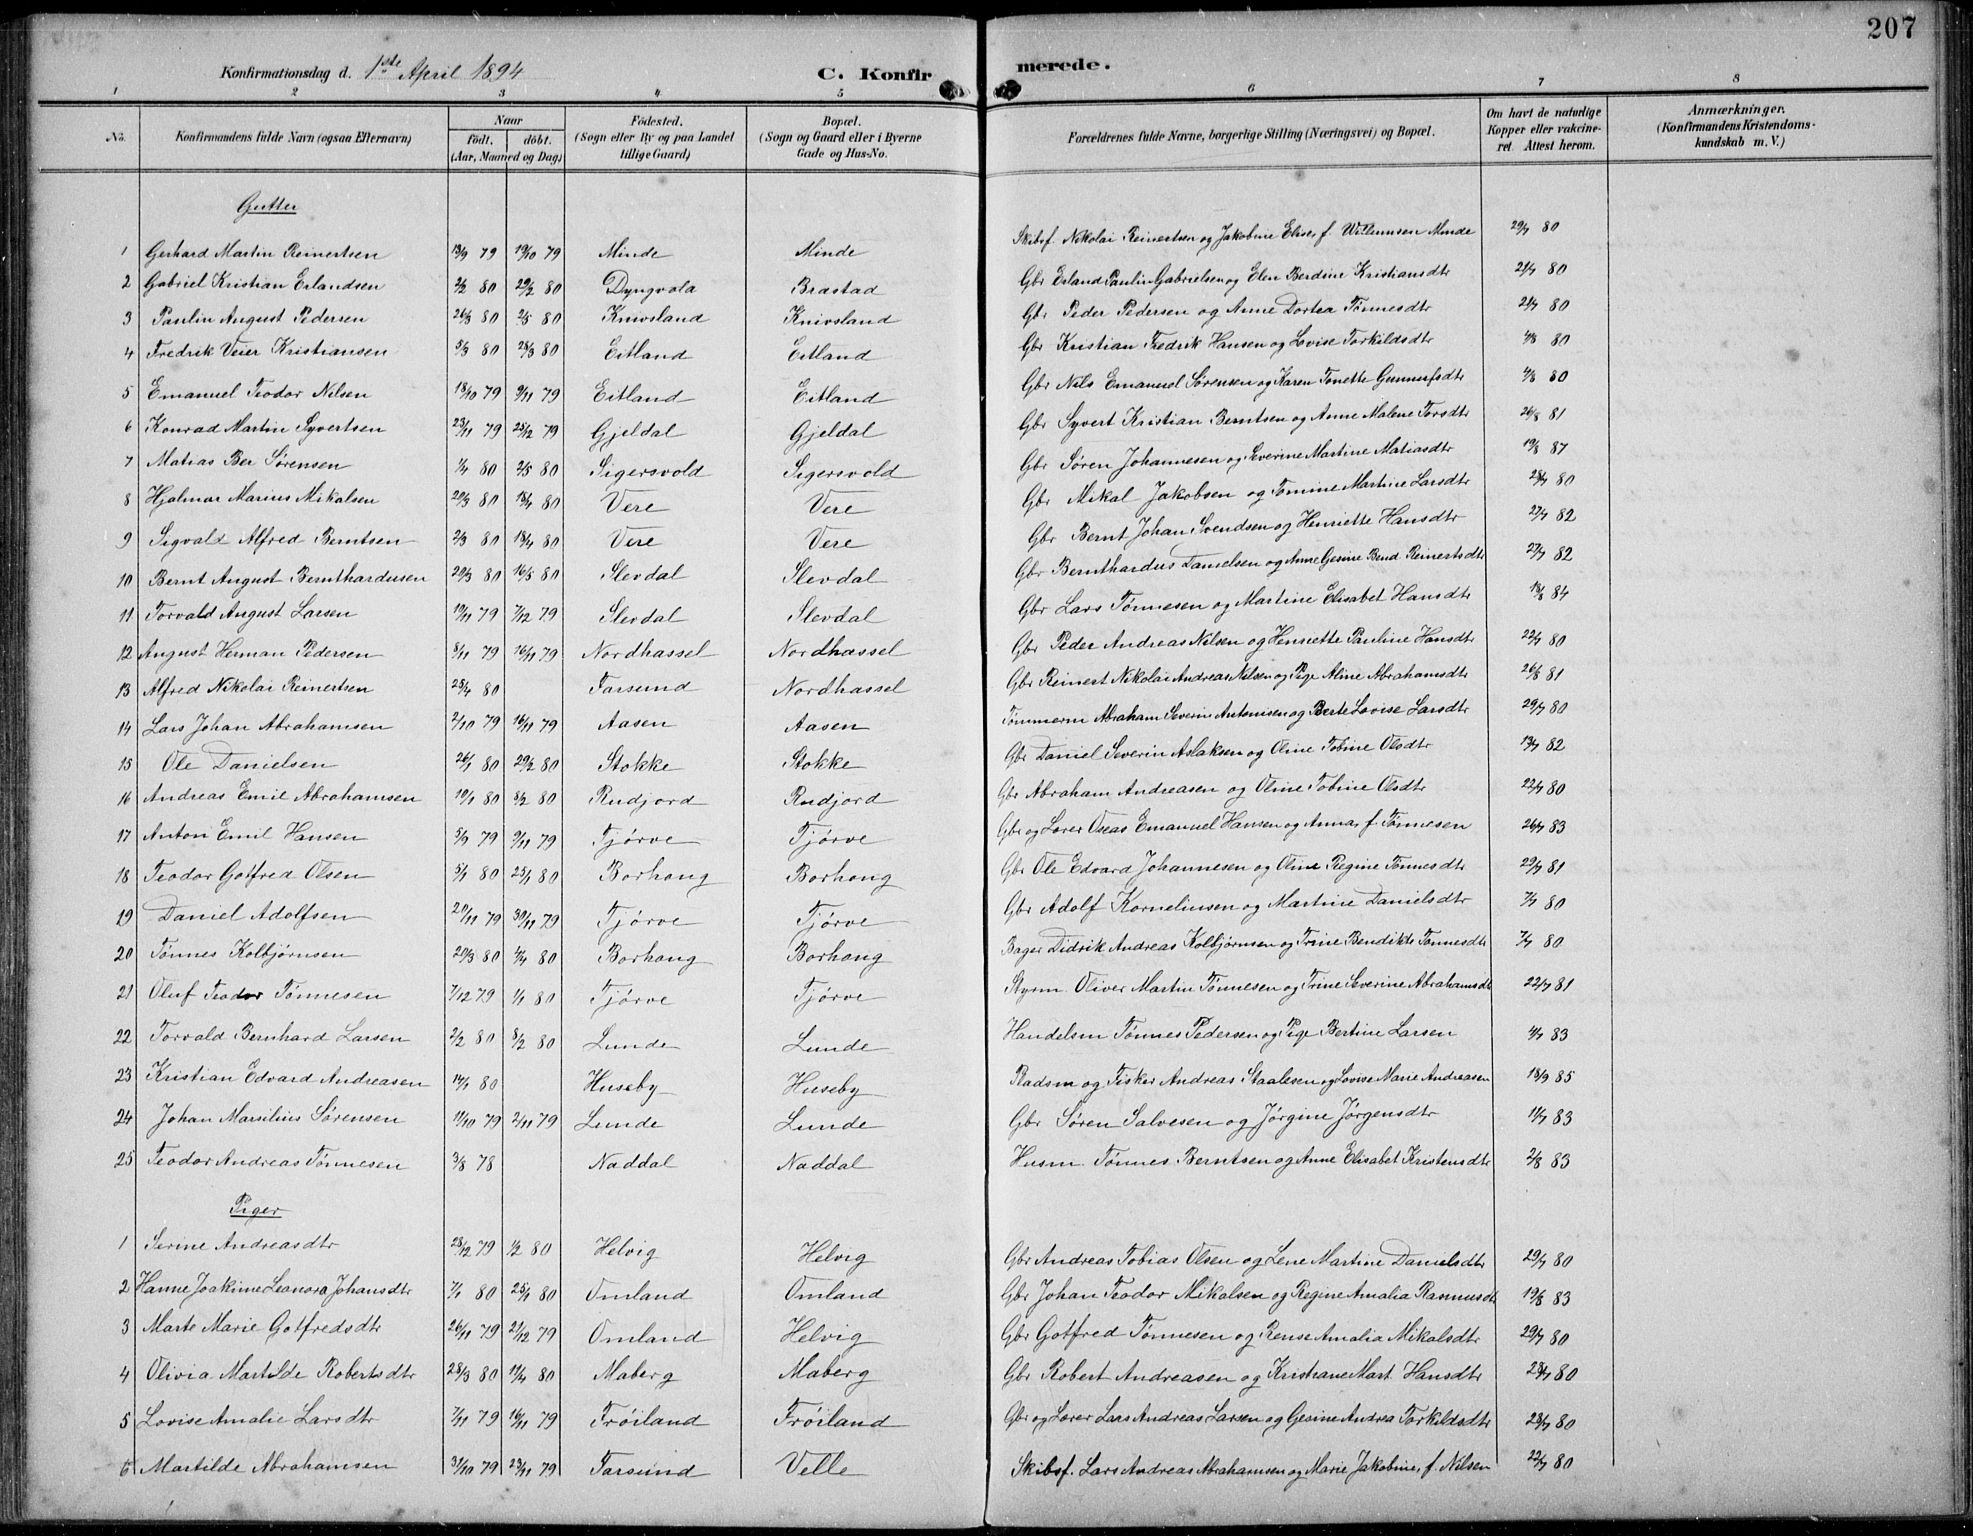 207
Konfirmationsdag d. 1ste April 1894 C. Konfirmerede.
1 2 3 4 5 6 7 8
No. Konfirmandens fulde Navn (ogsaa Efternavn) Naar født. døbt. (Aar, Maaned og Dag) Fødested. (Sogn eller By og paa Landet tillige Gaard) Bopæl. (Sogn og Gaard eller i Byerne Gade og Hus-No. Forældrenes fulde Navne, borgerlige Stilling (Næringsvei) og Bopæl. Om havt de naturlige Kopper eller vakcineret. Attest herom. Anmærkninger. (Konfirmandens Kristendomskundskab m. V.)
Gutter
1 Gerhard Martin Reinertsen 13/9 79 19/10 79 Minde Minde Skibsf. Nikolai Reinertsen og Jakobine Elise, f. Willumsen Minde 29/7 80
2 Gabriel Kristian Erlandsen 2/2 80 29/2 80 Dyngvola Brastad Gbr Erland Paulin Gabrielsen og Elen Berdine Kristiansdtr 21/7 80
3 Paulin August Pedersen 26/3 80 2/5 80 Knivsland Knivsland Gbr Peder Pedersen og Anne Dortea Tønnesdtr 21/7 80
4 Fredrik Veier Kristiansen 5/3 80 28/3 80 Eitland Eitland Gbr Kristian Fredrik Hansen og Lovise Torkildsdtr 4/8 80
5 Emanuel Teodor Nilsen 18/10 79 9/11 79 Eitland Eitland Gbr Nils Emanuel Sørensen og Karen Tonette Gunnufsdtr 4/8 80
6 Konrad Martin Syvertsen 23/11 79 25/12 79 Gjeldal Gjeldal Gbr Syvert Kristian Berntsen og Anne Malene Torsdtr 26/8 81
7 Matias Ber Sørensen 1/4 80 2/5 80 Sigersvold Sigersvold Gbr Søren Johannesen og Severine Martine Matiasdtr 19/8 87
8 Hjalmar Marius Mikalsen 20/3 80 18/4 80 Vere Vere Gbr Mikal Jakobsen og Tomine Martine Larsdtr 28/7 80
9 Sigvald Alfred Berntsen 2/3 80 18/4 80 Vere Vere Gbr Bernt Johan Svendsen og Henriette Hansdtr 27/7 82
10 Bernt August Bernthardusen 20/3 80 16/5 80 Slevdal Slevdal Gbr Bernthardus Danielsen og Anne Gesine Bend Reinertsdtr 27/7 82
11 Torvald August Larsen 19/11 79 7/12 79 Slevdal Slevdal Gbr Lars Tønnesen og Martine Elisabet Hansdtr 13/8 84
12 August Herman Pedersen 8/11 79 16/11 79 Nordhassel Nordhassel Gbr Peder Andreas Nilsen og Henriette Pauline Hansdtr 22/7 80
13 Alfred Nikolai Reinertsen 25/4 80 Farsund Nordhassel Gbr Reinert Nikolai Andreas Nilsen og Pige Aline Abrahamsdtr 26/8 81
14 Lars Johan Abrahamsen 2/10 79 16/11 79 Aasen Aasen Tømmerm Abraham Severin Antonisen og Berte Lovise Larsdtr 29/7 80
15 Ole Danielsen 26/1 80 29/2 80 Stokke Stokke Gbr Daniel Severin Aslaksen og Oline Tobine Olsdtr 13/7 82
16 Andreas Emil Abrahamsen 19/1 80 8/2 80 Rudjord Rudjord Gbr Abraham Andreasen og Oline Tobine Olsdtr 22/7 80
17 Anton Emil Hansen 5/9 79 9/11 79 Tjørve Tjørve Gbr og Lorer Oseas Emanuel Hansen og Anna, f. Tønnesen 26/7 83
18 Teodor Gotfred Olsen 5/1 80 25/1 80 Borhong Borhong Gbr Ole Edvard Johannesen og Oline Regine Tønnesdtr 29/7 81
19 Daniel Adolfsen 20/11 79 30/11 79 Tjørve Tjørve Gbr Adolf Korneliusen og Martine Danielsdtr 7/7 80
20 Tønnes Kolbjørnsen 20/3 80 4/4 80 Borhong Borhong Bager Didrik Andreas Kolbjørnsen og Trine Bendikte Tønnesdtr 7/7 80
21 Oluf Teodor Tønnesen 7/12 79 1/1 80 Tjørve Tjørve Styrm. Oliver Martin Tønnesen og Trine Severine Abrahamsdt 22/7 81
22 Torvald Bernhard Larsen 2/2 80 8/2 80 Lunde Lunde Handelsm Tønnes Pedersen og Pige Bertine Larsen 4/7 83
23 Kristian Edvard Andreasen 14/1 80 Huseby Huseby Radsm og Fisker Andreas Staalesen og Lovise Marie Andreasen 18/9 85
24 Johan Marsilius Sørensen 11/10 79 2/11 79 Lunde Lunde Gbr Søren Salvesen og Jørgine Jørgensdtr 11/7 83
25 Teodor Andreas Tønnesen 3/8 78 Naddal Naddal Husm. Tønnes Berntsen og Anne Elisabet Kristensdtr 2/8 83
Piger
1 Serine Andreasdtr 28/12 79 1/2 80 Helvig Helvig Gbr Andreas Tobias Olsen og Lene Martine Danielsdtr 29/7 80
2 Hanne Joakime Leonora Johansdtr 7/1 80 25/1 80 Omland Omland Gbr Johan Teodor Mikalsen og Regine Amalia Rasmusdt 19/8 83
3 Marte Marie Gotfredsdtr 26/11 79 21/12 79 Omland Helvig Gbr Gotfred Tønnesen og Rense Amalia Mikalsdtr 29/7 80
4 Olivia Martilde Robertsdtr 28/3 80 11/4 80 Maberg Maberg Gbr Robert Andreasen og Kristiane Mart Hansdtr 28/7 80
5 Lovise Amalie Larsdtr 7/11 79 16/11 79 Frøiland Frøiland Gbr og Lorer Lars Andreas Larsen og Gesine Andrea Torkildsdtr 28/7 80
6 Martilde Abrahamsen 31/10 79 23/11 79 Farsund Velle Skibsf. Lars Andreas Abrahamsen og Marie Jakobine, f. Nilsen 22/7 80